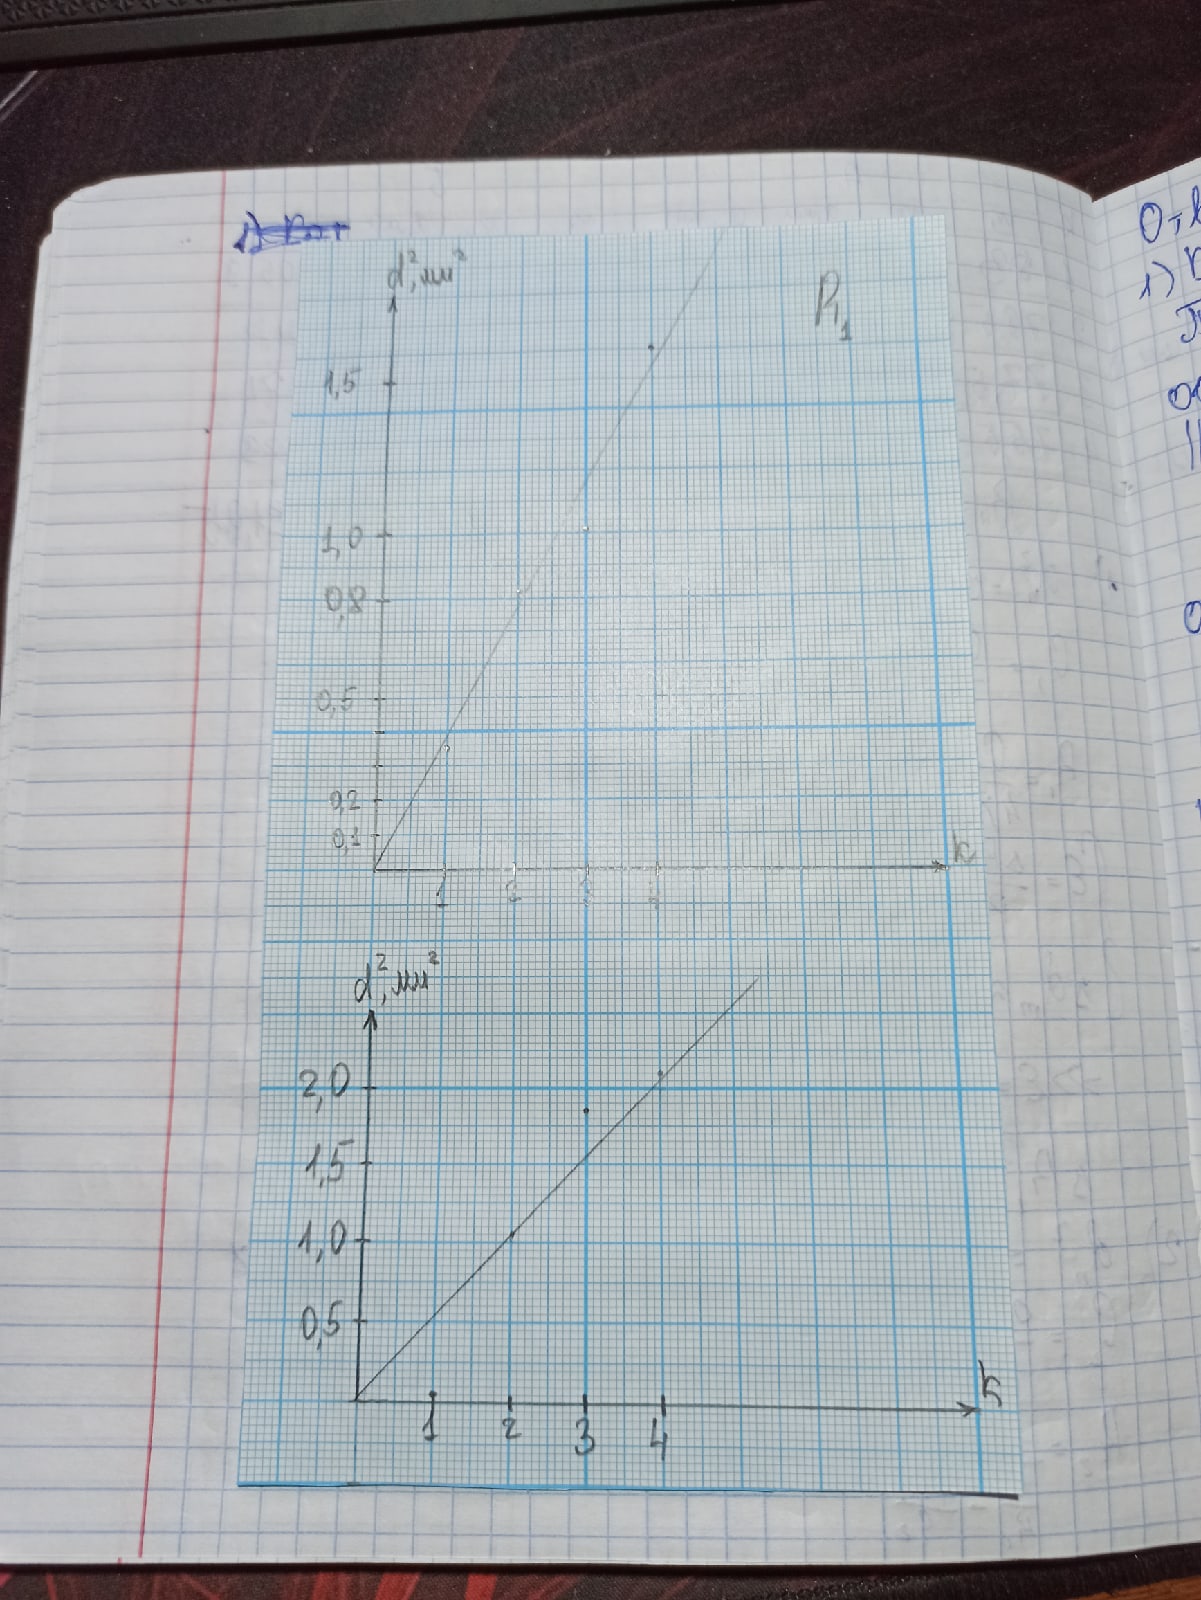 d², мм²
R₁
1,5
1,0
0,8
0,5
0,2
0,1
k
1 2 3 4
d², мм²
2,0
1,5
1,0
0,5
k
1 2 3 4
1)